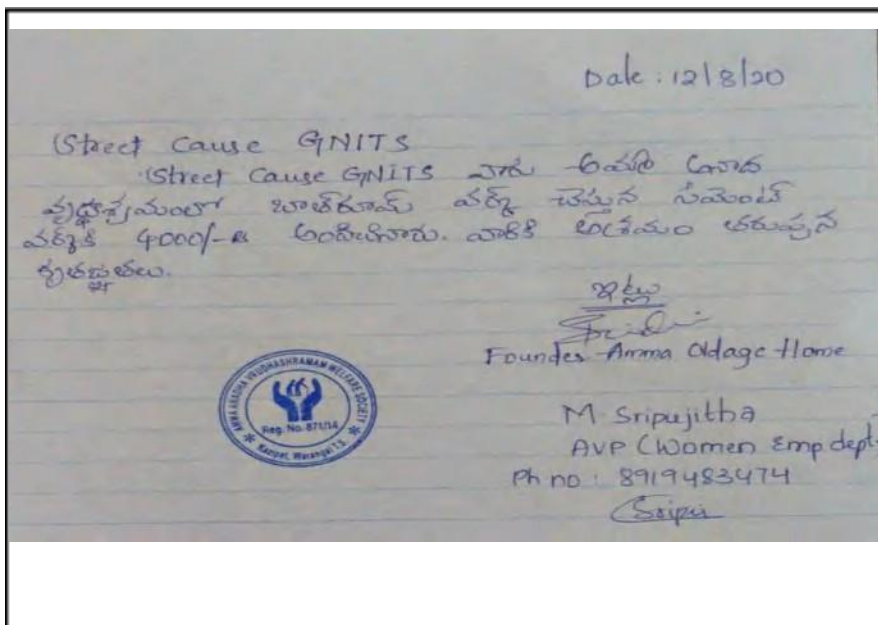 Date : 12/8/20
Street Cause GNITS
Street Cause GNITS వారు అమ్మ అనాద
వృద్ధాశ్రమంలో బాత్‌రూమ్ వర్క్ చేస్తున సిమెంట్
వర్క్‌కి 4000/-లు అందించినారు. వారికి ఆశ్రమం తరుపున
కృతజ్ఞతలు.
ఇట్లు
Founder Amma Oldage Home
AMMA ANADHA VRUDHASHRAMAM WELFARE SOCIETY
Reg. No. 871/14
Kazipet, Warangal T.S.
M Sripujitha
AVP (Women Emp dept.
Ph no : 8919483474
Sripu